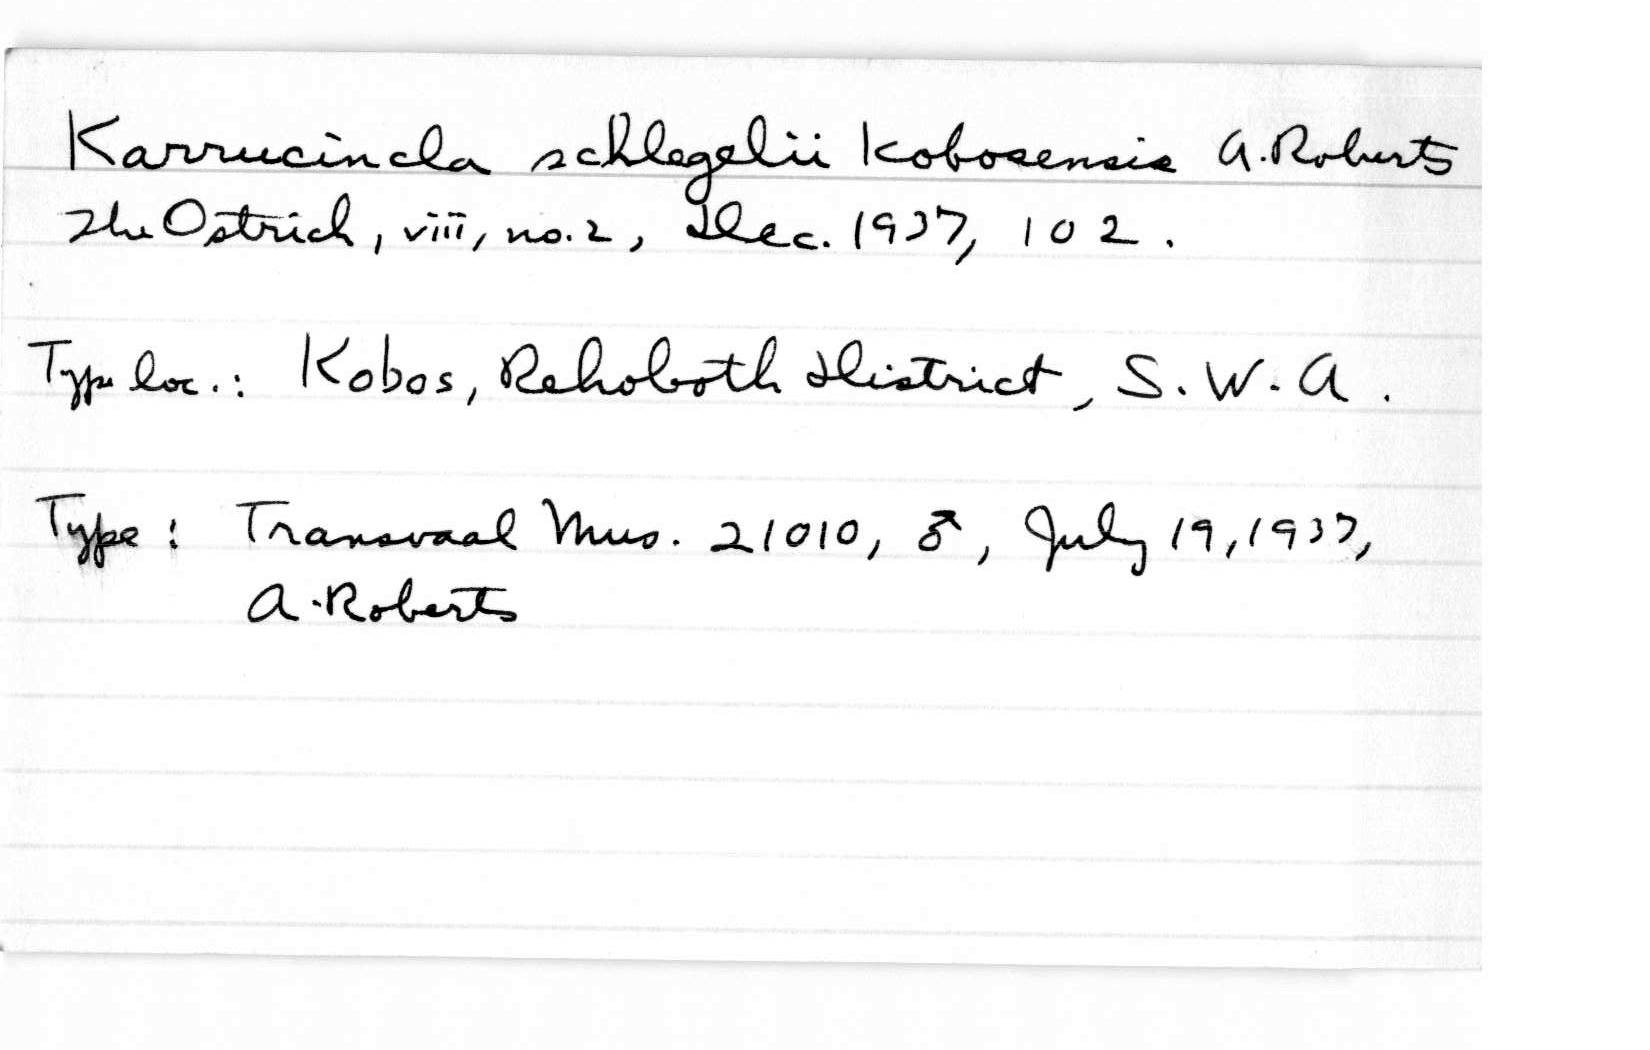 Karrucincla schlegelii kobosensis A. Roberts
The Ostrich, viii, no. 2, Dec. 1937, 102.
Type loc.: Kobos, Rehoboth District, S.W.A.
Type: Transvaal Mus. 21010, ♂, July 19, 1937,
A. Roberts